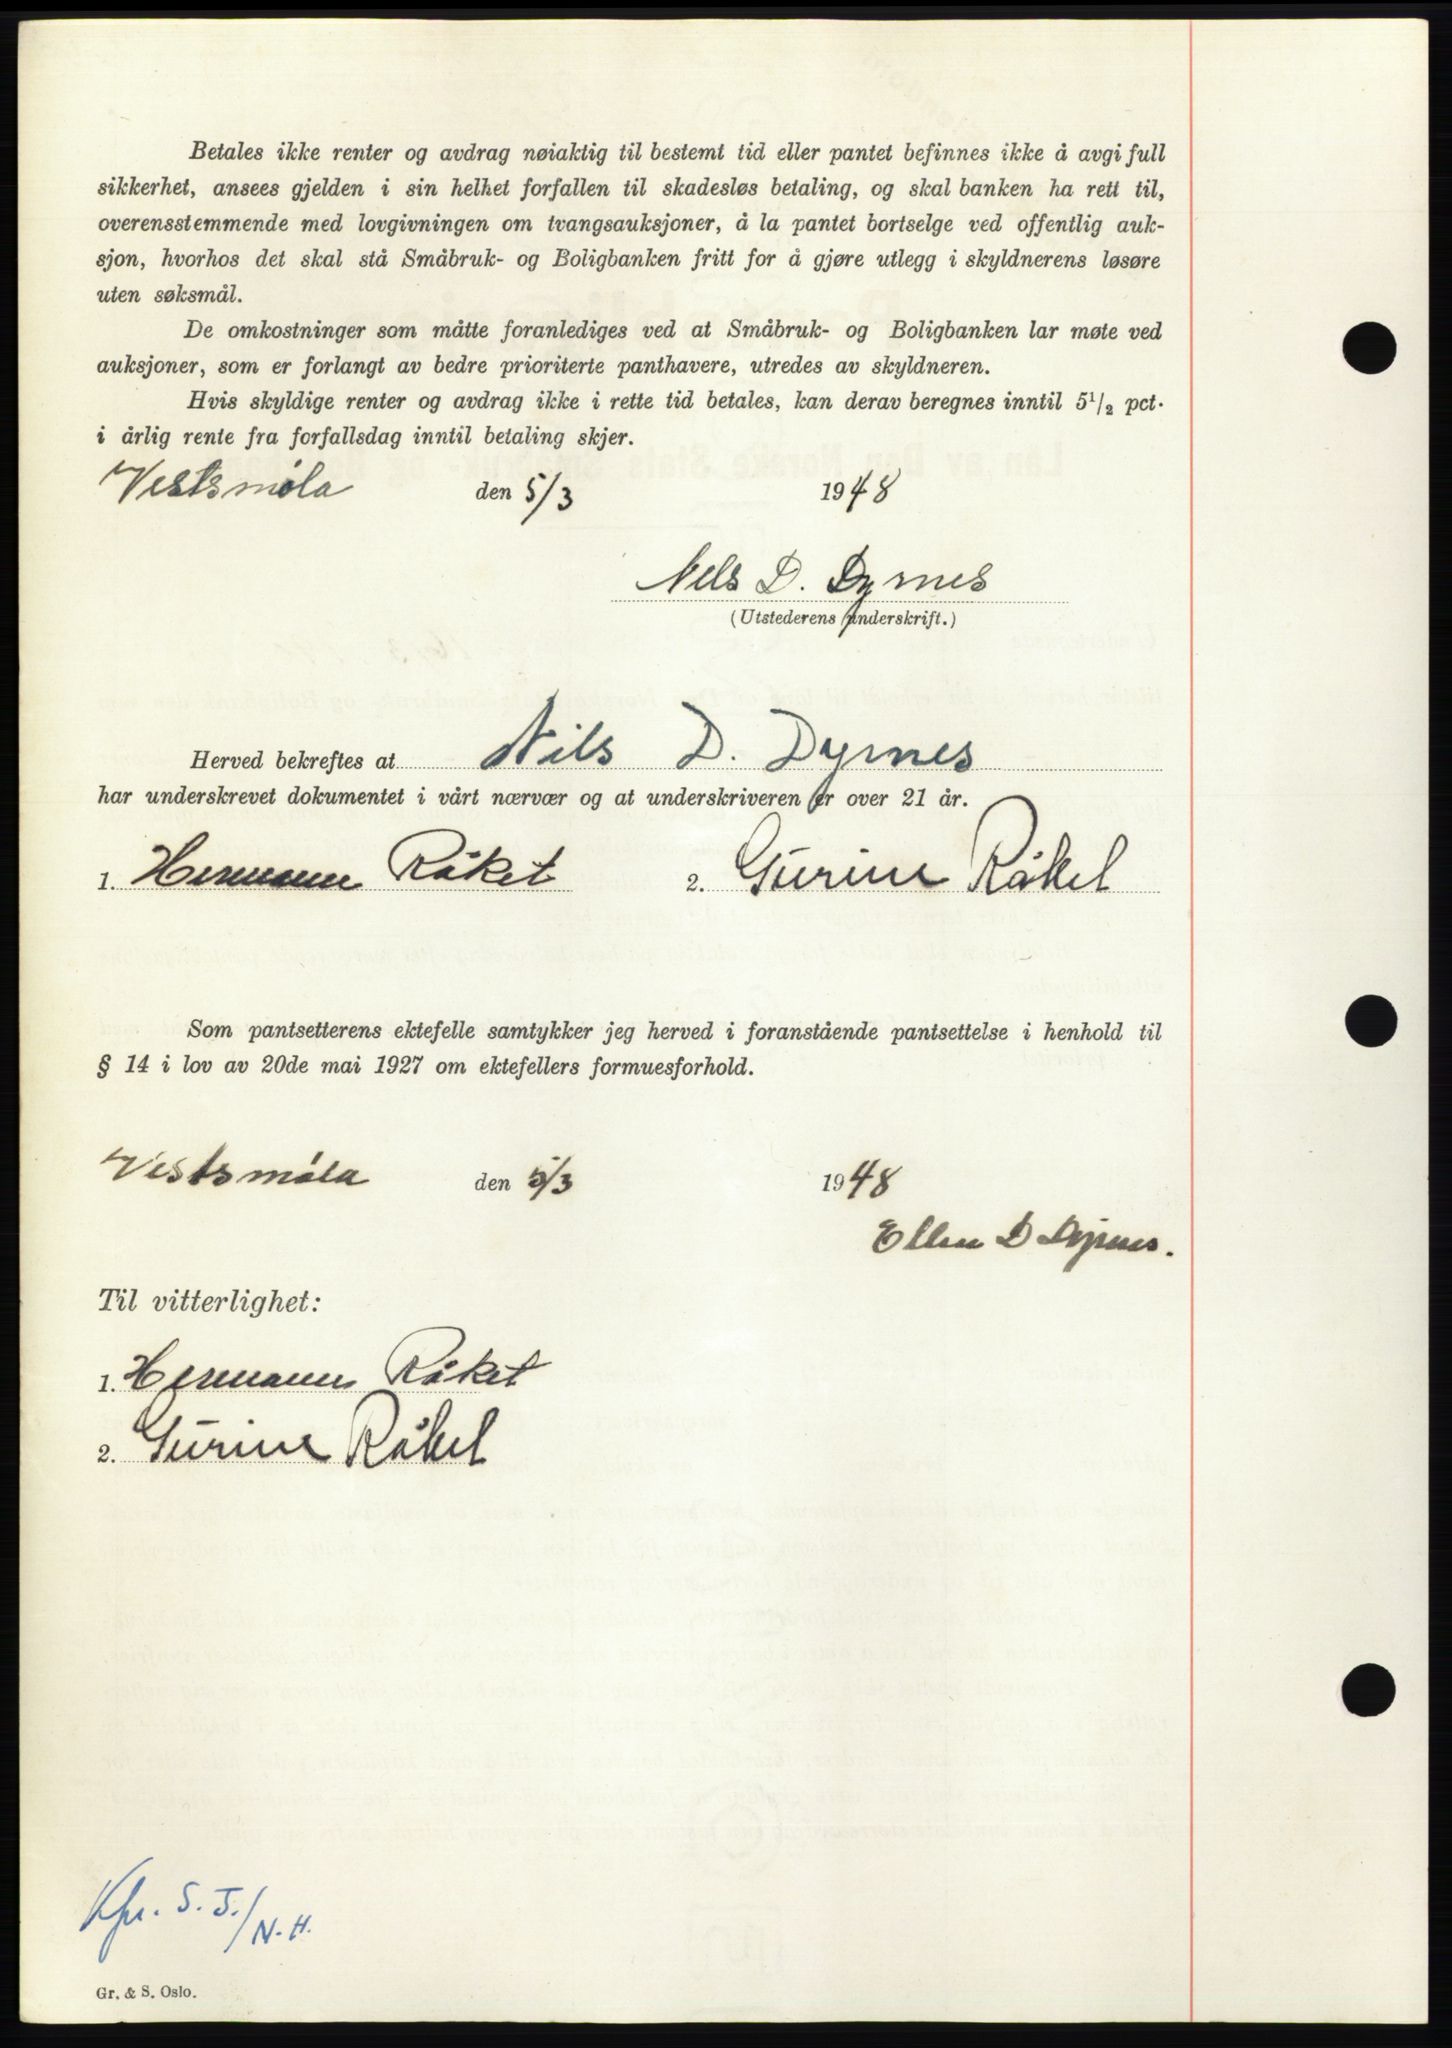 Betales ikke renter og avdrag nøiaktig til bestemt tid eller pantet befinnes ikke å avgi full
sikkerhet, ansees gjelden i sin helhet forfallen til skadesløs betaling, og skal banken ha rett til,
overensstemmende med lovgivningen om tvangsauksjoner, å la pantet bortselge ved offentlig auk-
sjon, hvorhos det skal stå Småbruk- og Boligbanken fritt for å gjøre utlegg i skyldnerens løsøre
uten søksmål.
De omkostninger som måtte foranlediges ved at Småbruk- og Boligbanken lar møte ved
auksjoner, som er forlangt av bedre prioriterte panthavere, utredes av skyldneren.
Hvis skyldige renter og avdrag ikke i rette tid betales, kan derav beregnes inntil 5 1/2 pct.
i årlig rente fra forfallsdag inntil betaling skjer.
Vestsmøla den 5/3 1948
Nils D. Dyrnes
(Utstederens underskrift.)
Herved bekreftes at Nils D. Dyrnes
har underskrevet dokumentet i vårt nærvær og at underskriveren er over 21 år.
1. Hermann Råket 2. Gurine Råket
Som pantsetterens ektefelle samtykker jeg herved i foranstående pantsettelse i henhold til
§ 14 i lov av 20de mai 1927 om ektefellers formuesforhold.
Vestsmøla den 5/3 1948
Ellen D Dyrnes.
Til vitterlighet:
1. Hermann Råket
2. Gurine Råket
Kpr. S. J./N. H.
Gr. & S. Oslo.